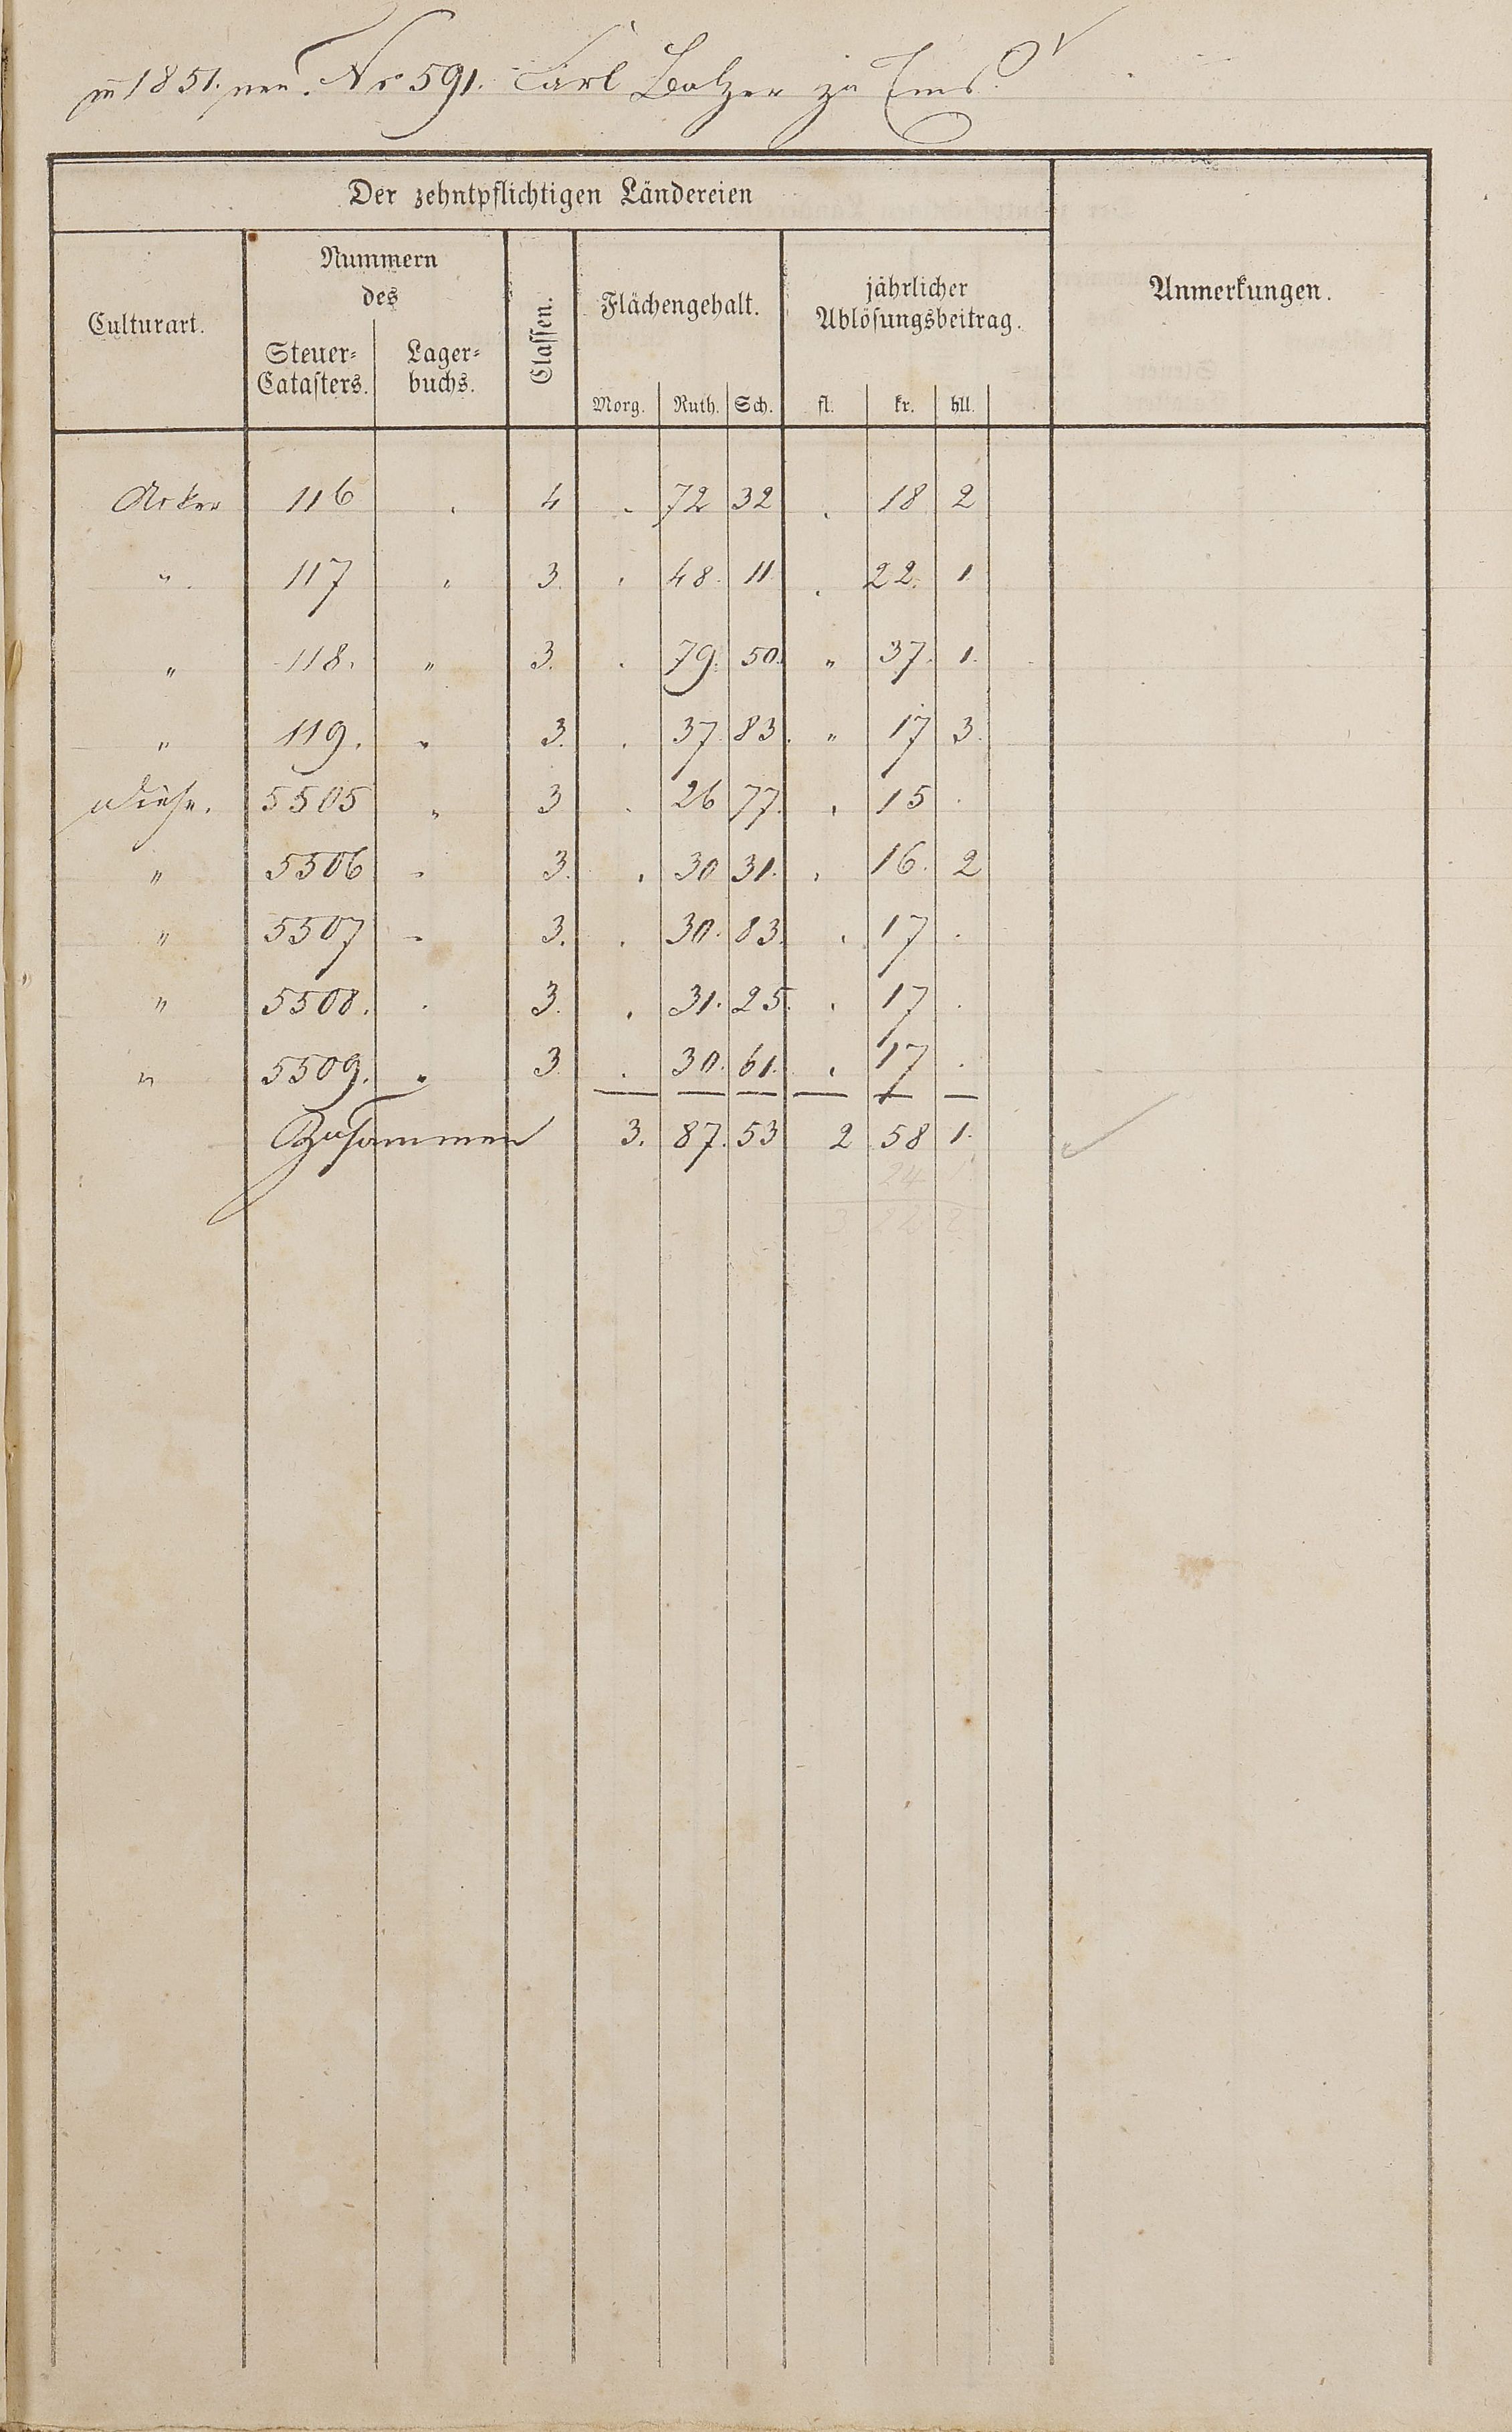 in 1851. neu. No 591. Carl Balzer zu Ems.
Der zehntpflichtigen Ländereien
Culturart.
Nummern
des
Steuer-
Catasters.
Lager-
buchs.
Classen.
Flächengehalt.
jährlicher
Ablösungsbeitrag.
Anmerkungen.
Morg. Ruth. Sch. fl. kr. hll.
Acker 116 . 4 . 72 32 . 18 2
" 117 " 3. . 48. 11 . 22. 1
" 118. " 3. . 79. 50. " 37. 1.
" 119. " 3. . 37. 83. " 17 3.
Wiese. 5505 " 3 . 26 77. . 15 .
" 5506 - 3. . 30 31. . 16. 2
" 5507 - 3. . 30. 83. . 17 .
" 5508. . 3. . 31. 25. . 17 .
" 5509. . 3. . 30. 61. . 17 .
Zusammen 3. 87. 53 2 58 1.
24
3 22 2